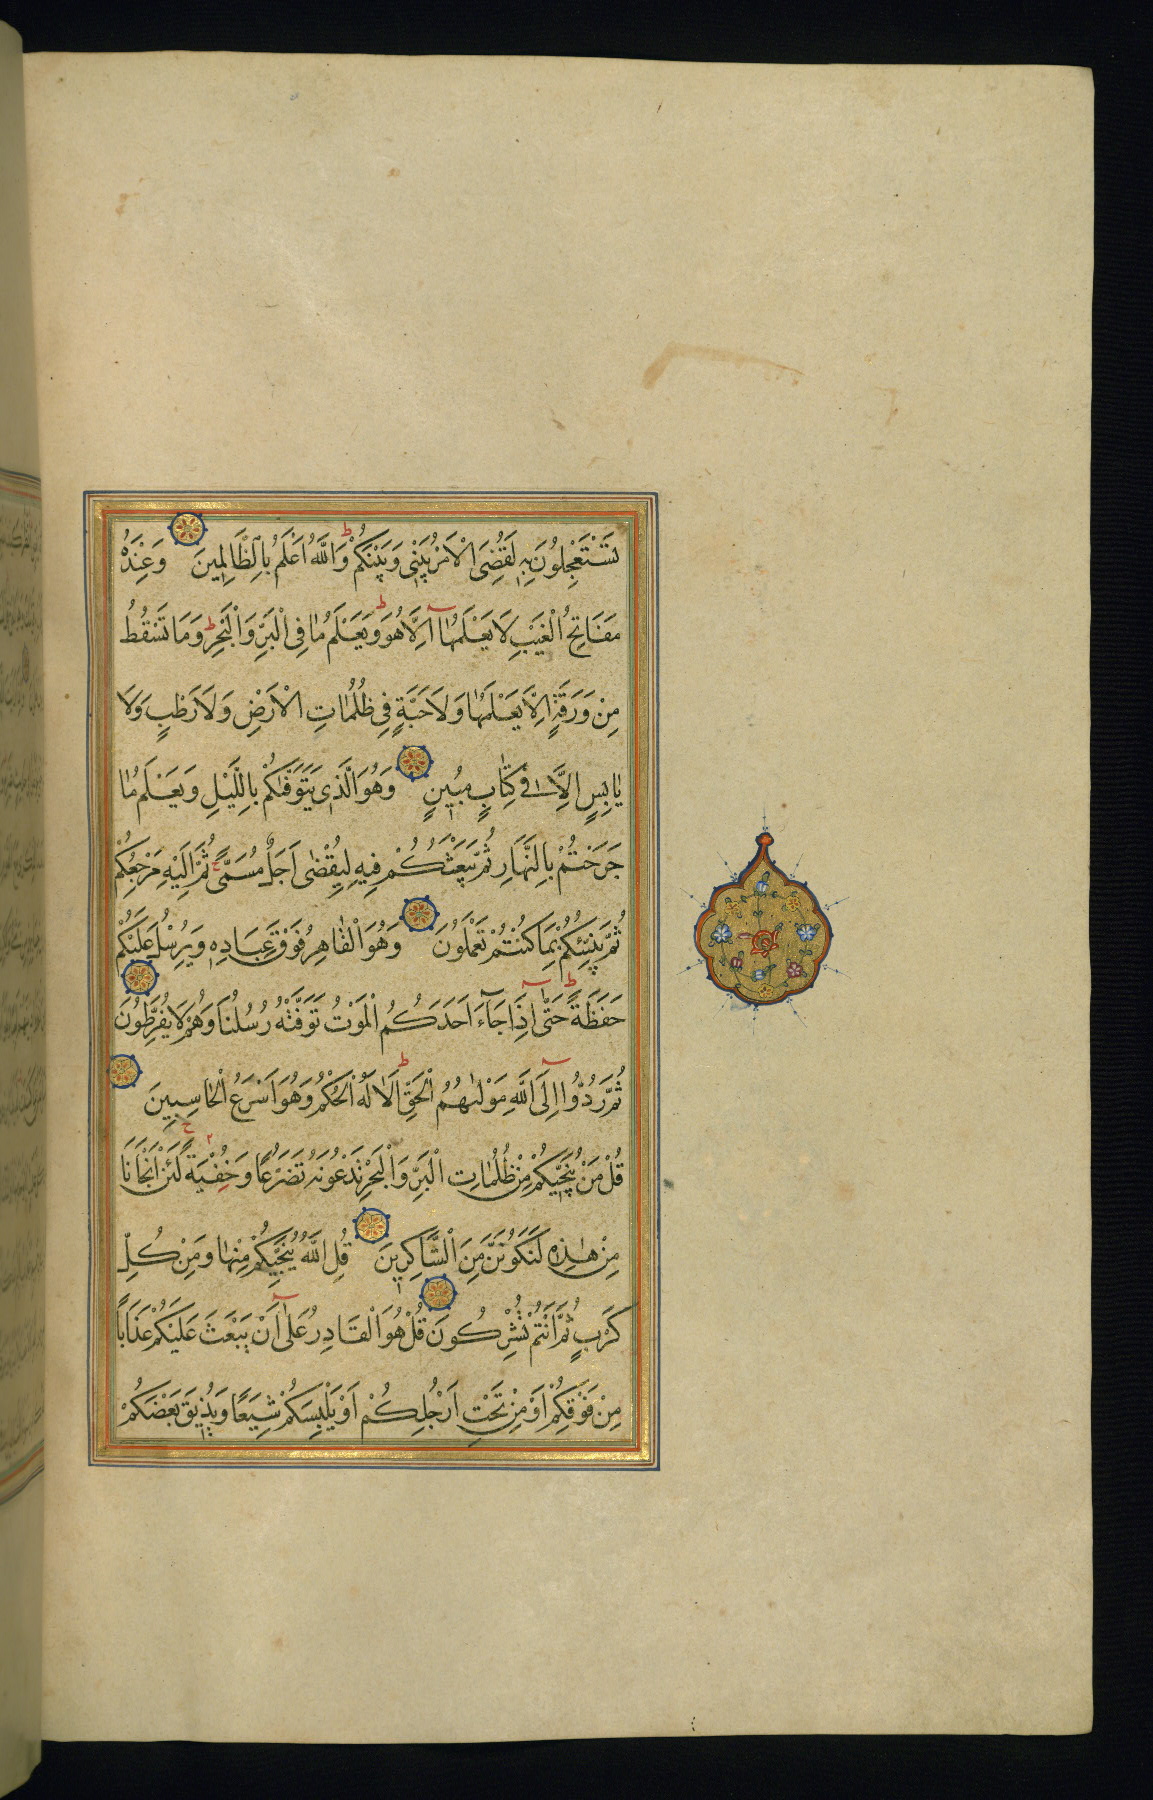 تَسْتَعْجِلُونَ بِهِ لَقُضِيَ الْاَمْرُ بَيْنِي وَبَيْنَكُمْ ط وَاللَّهُ اَعْلَمُ بِالظَّالِمِينَ وَعِنْدَهُ
مَفَاتِحُ الْغَيْبِ لَا يَعْلَمُهَا اِلَّا هُوَ ط وَيَعْلَمُ مَا فِي الْبَرِّ وَالْبَحْرِ ط وَمَا تَسْقُطُ
مِنْ وَرَقَةٍ اِلَّا يَعْلَمُهَا وَلَا حَبَّةٍ فِي ظُلُمَاتِ الْاَرْضِ وَلَا رَطْبٍ وَلَا
يَابِسٍ اِلَّا فِي كِتَابٍ مُبِينٍ وَهُوَ الَّذِي يَتَوَفَّيكُمْ بِاللَّيْلِ وَيَعْلَمُ مَا
جَرَحْتُمْ بِالنَّهَارِ ثُمَّ يَبْعَثُكُمْ فِيهِ لِيُقْضٰى اَجَلٌ مُسَمًّى ج ثُمَّ اِلَيْهِ مَرْجِعُكُمْ
ثُمَّ يُنَبِّئُكُمْ بِمَا كُنْتُمْ تَعْمَلُونَ وَهُوَ الْقَاهِرُ فَوْقَ عِبَادِهِ وَيُرْسِلُ عَلَيْكُمْ
حَفَظَةً ط حَتّٰى اِذَا جَآءَ اَحَدَكُمُ الْمَوْتُ تَوَفَّتْهُ رُسُلُنَا وَهُمْ لَا يُفَرِّطُونَ
ثُمَّ رُدُّوا اِلَى اللَّهِ مَوْلٰيهُمُ الْحَقِّ ط اَلَا لَهُ الْحُكْمُ وَهُوَ اَسْرَعُ الْحَاسِبِينَ
قُلْ مَنْ يُنَجِّيكُمْ مِنْ ظُلُمَاتِ الْبَرِّ وَالْبَحْرِ تَدْعُونَهُ تَضَرُّعًا وَخُفْيَةً ج لَئِنْ اَنْجَانَا
مِنْ هٰذِهِ لَنَكُونَنَّ مِنَ الشَّاكِرِينَ قُلِ اللَّهُ يُنَجِّيكُمْ مِنْهَا وَمِنْ كُلِّ
كَرْبٍ ثُمَّ اَنْتُمْ تُشْرِكُونَ قُلْ هُوَ الْقَادِرُ عَلٰى اَنْ يَبْعَثَ عَلَيْكُمْ عَذَابًا
مِنْ فَوْقِكُمْ اَوْ مِنْ تَحْتِ اَرْجُلِكُمْ اَوْ يَلْبِسَكُمْ شِيَعًا وَيُذِيقَ بَعْضَكُمْ